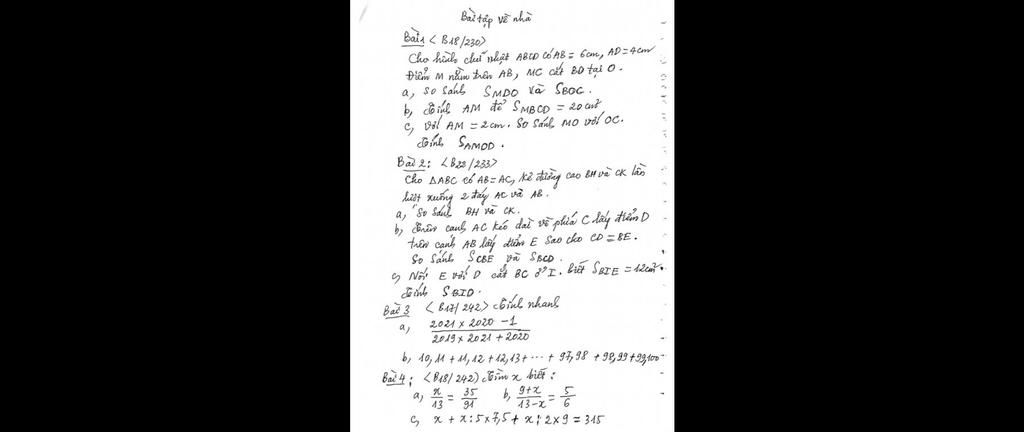 Bài tập về nhà
Bài 1 <B18/230>
Cho hình chữ nhật ABCD có AB = 6cm, AD = 4cm
Điểm M nằm trên AB, MC cắt BD tại O.
a, So sánh S_MDO và S_BOC.
b, Tính AM để S_MBCD = 20cm²
c, Với AM = 2cm. So sánh MO với OC.
Tính S_AMOD.
Bài 2: <B22/233>
Cho ΔABC có AB = AC, kẻ đường cao BH và CK lần
lượt xuống 2 đáy AC và AB.
a, So sánh BH và CK.
b, Trên cạnh AC kéo dài về phía C lấy điểm D
trên cạnh AB lấy điểm E sao cho CD = BE.
So sánh S_CBE và S_BCD.
c, Nối E với D cắt BC ở I. biết S_BIE = 12cm².
Tính S_BID.
Bài 3 <B17/242> Tính nhanh
a, (2021 x 2020 - 1) / (2019 x 2021 + 2020)
b, 10,11 + 11,12 + 12,13 + ... + 97,98 + 98,99 + 99,100
Bài 4: <B18/242> Tìm x biết:
a, x/13 = 35/91 b, (9+x)/(13-x) = 5/6
c, x + x : 5 x 7,5 + x : 2 x 9 = 315